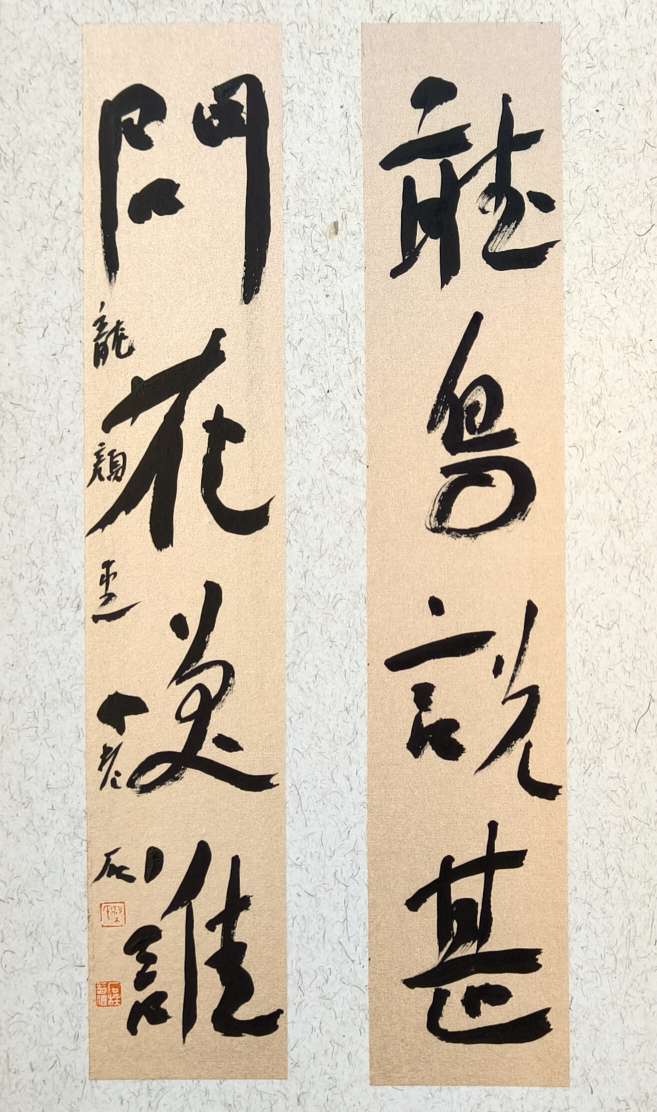 聽鳥說甚
問花笑誰
龍顏